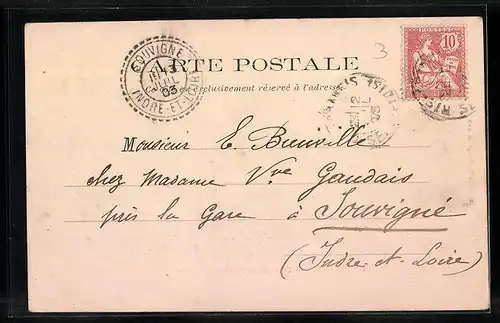 3
10
CARTE POSTALE
Ce côté est exclusivement réservé à l'adresse
SOUVIGNÉ
13
JUIL
03
INDRE-ET-LOIRE
Monsieur E. Bienville
chez Madame Vve Gaudais
près la Gare à Souvigné
(Indre-et-Loire)